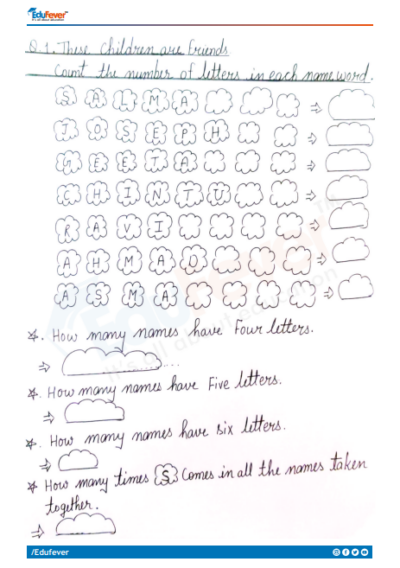 EduFever
Q1. These Children are Friends
Count the number of letters in each name word.
S A L M A ⇒
J O S E P H ⇒
G E E T A ⇒
C H I N T U ⇒
R A V I ⇒
A H M A D ⇒
A S M A ⇒
EduFever
it's all about education
☆. How many names have Four letters.
⇒
☆. How many names have Five letters.
⇒
☆. How many names have six letters.
⇒
☆ How many times S Comes in all the names taken
together.
⇒
/Edufever